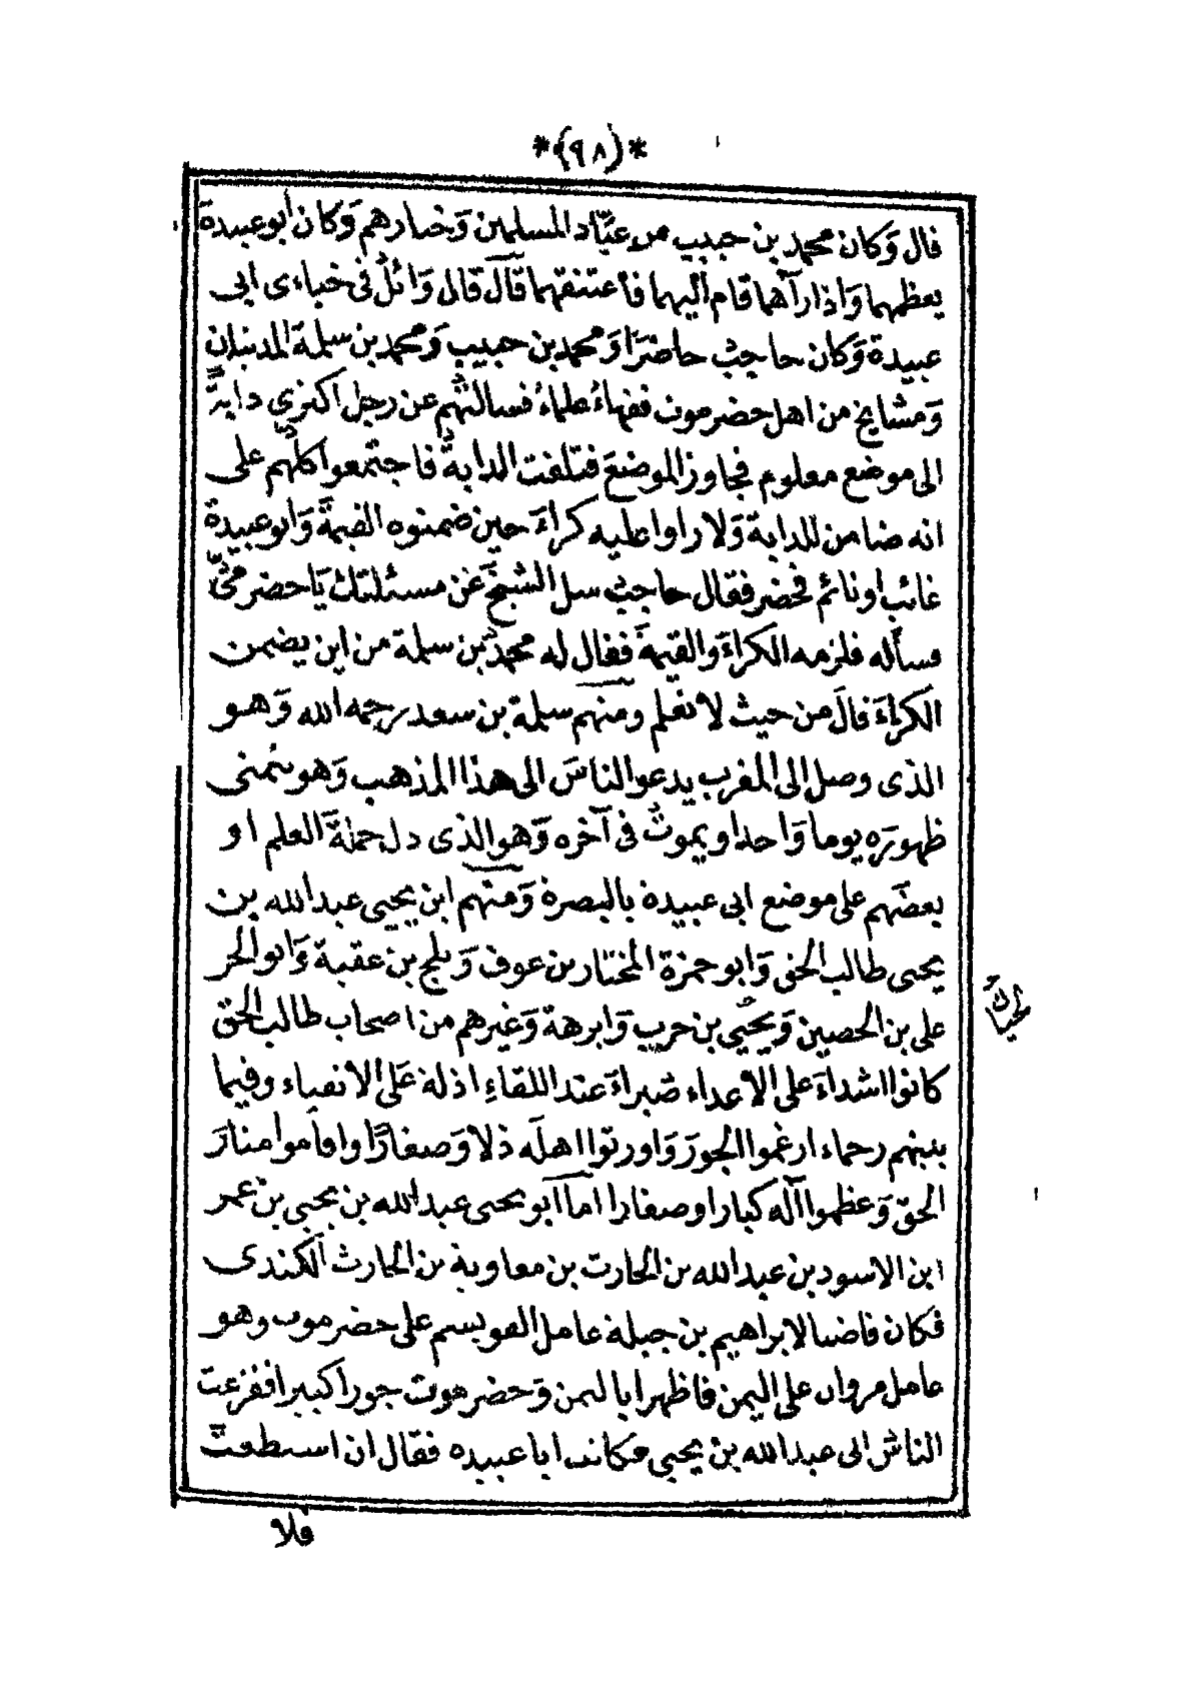 *(٩٨)*
قال وَكان محمد بن حبيب من عبّاد المسلمين وَخيارهم وَكان ابو عبيدة
يعظمهما وَاذا رآهما قام اليهما فاعتنقهما قال قال وَائل في خباءى ابى
عبيدة وَكان حاجب حاضرًا وَمحمد بن حبيب وَمحمد بن سلمة المدنيان
وَمشايخ من اهل حضرموت فقهاءُ علماءُ فسالتُهم عن رجل اكترى دابةً
الى موضع معلوم فجاوز الموضعَ فتلفت الدابةُ فاجتمعوا كلُّهم على
انه ضامن للدابة وَلا راوا عليه كراءَ حين ضمنوه القيمةَ وَابو عبيدة
غائب او نائم فحضر فقال حاجب سل الشيخَ عن مسئلتك يَا حضرمىُّ
فسأله فلزمه الكراءَ والقيمةَ فقال له محمدُ بن سلمة من اين يضمن
الكراءَ قالَ من حيث لا تعلم ومنهم سلمة بن سعد رحمه الله وَهو
الذى وصل الى المغرب يدعو الناسَ الى هذا المذهب وَهو يتمنى
ظهورَه يوما وَاحدا ويموتُ في آخره وَهو الذى دل حملةَ العلم او
بعضَهم على موضع ابى عبيدة بالبصرة وَمنهم ابن يحيى عبد الله بن
يحيى طالب الحق وَابو حمزة المختار بن عوف وَبلج بن عقبة وَابو الحر
على بن الحصين وَيحيُى بن حرب وَابرهة وَغيرهم من اصحاب طالب الحق
كانوا اشداءَ على الاعداء صُبراءَ عند اللقاءِ اذلة عَلى الاتقياء وفيما
بينهم رحماء ارغموا الجورَ وَاورثوا اهلَه ذلا وَصغارًا واقاموا منارَ
الحق وَعظموا آله كبارا وصغارا اما ابو يحيى عبد الله بن يحيى بن عمر
ابن الاسود بن عبد الله بن الحارث بن معاوية بن الحارث الكندى
فكان قاضيا لابراهيم بن جبلة عامل القويسم على حضرموت وهو
عامل مروان على اليمن فاظهرا باليمن وَحضرموت جورا كبيرا ففزعت
الناسُ الى عبد الله بن يحيى فكاتب ابا عبيده فقال ان استطعتَ
فلا